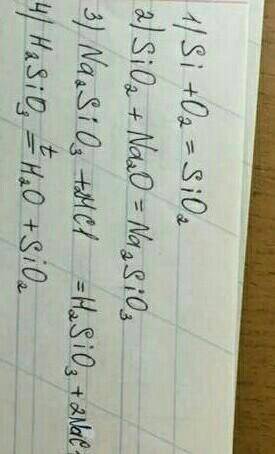 1) Si + O₂ = SiO₂
2) SiO₂ + Na₂O = Na₂SiO₃
3) Na₂SiO₃ + HCl = H₂SiO₃ + 2NaC
4) H₂SiO₃ =ᵗ H₂O + SiO₂